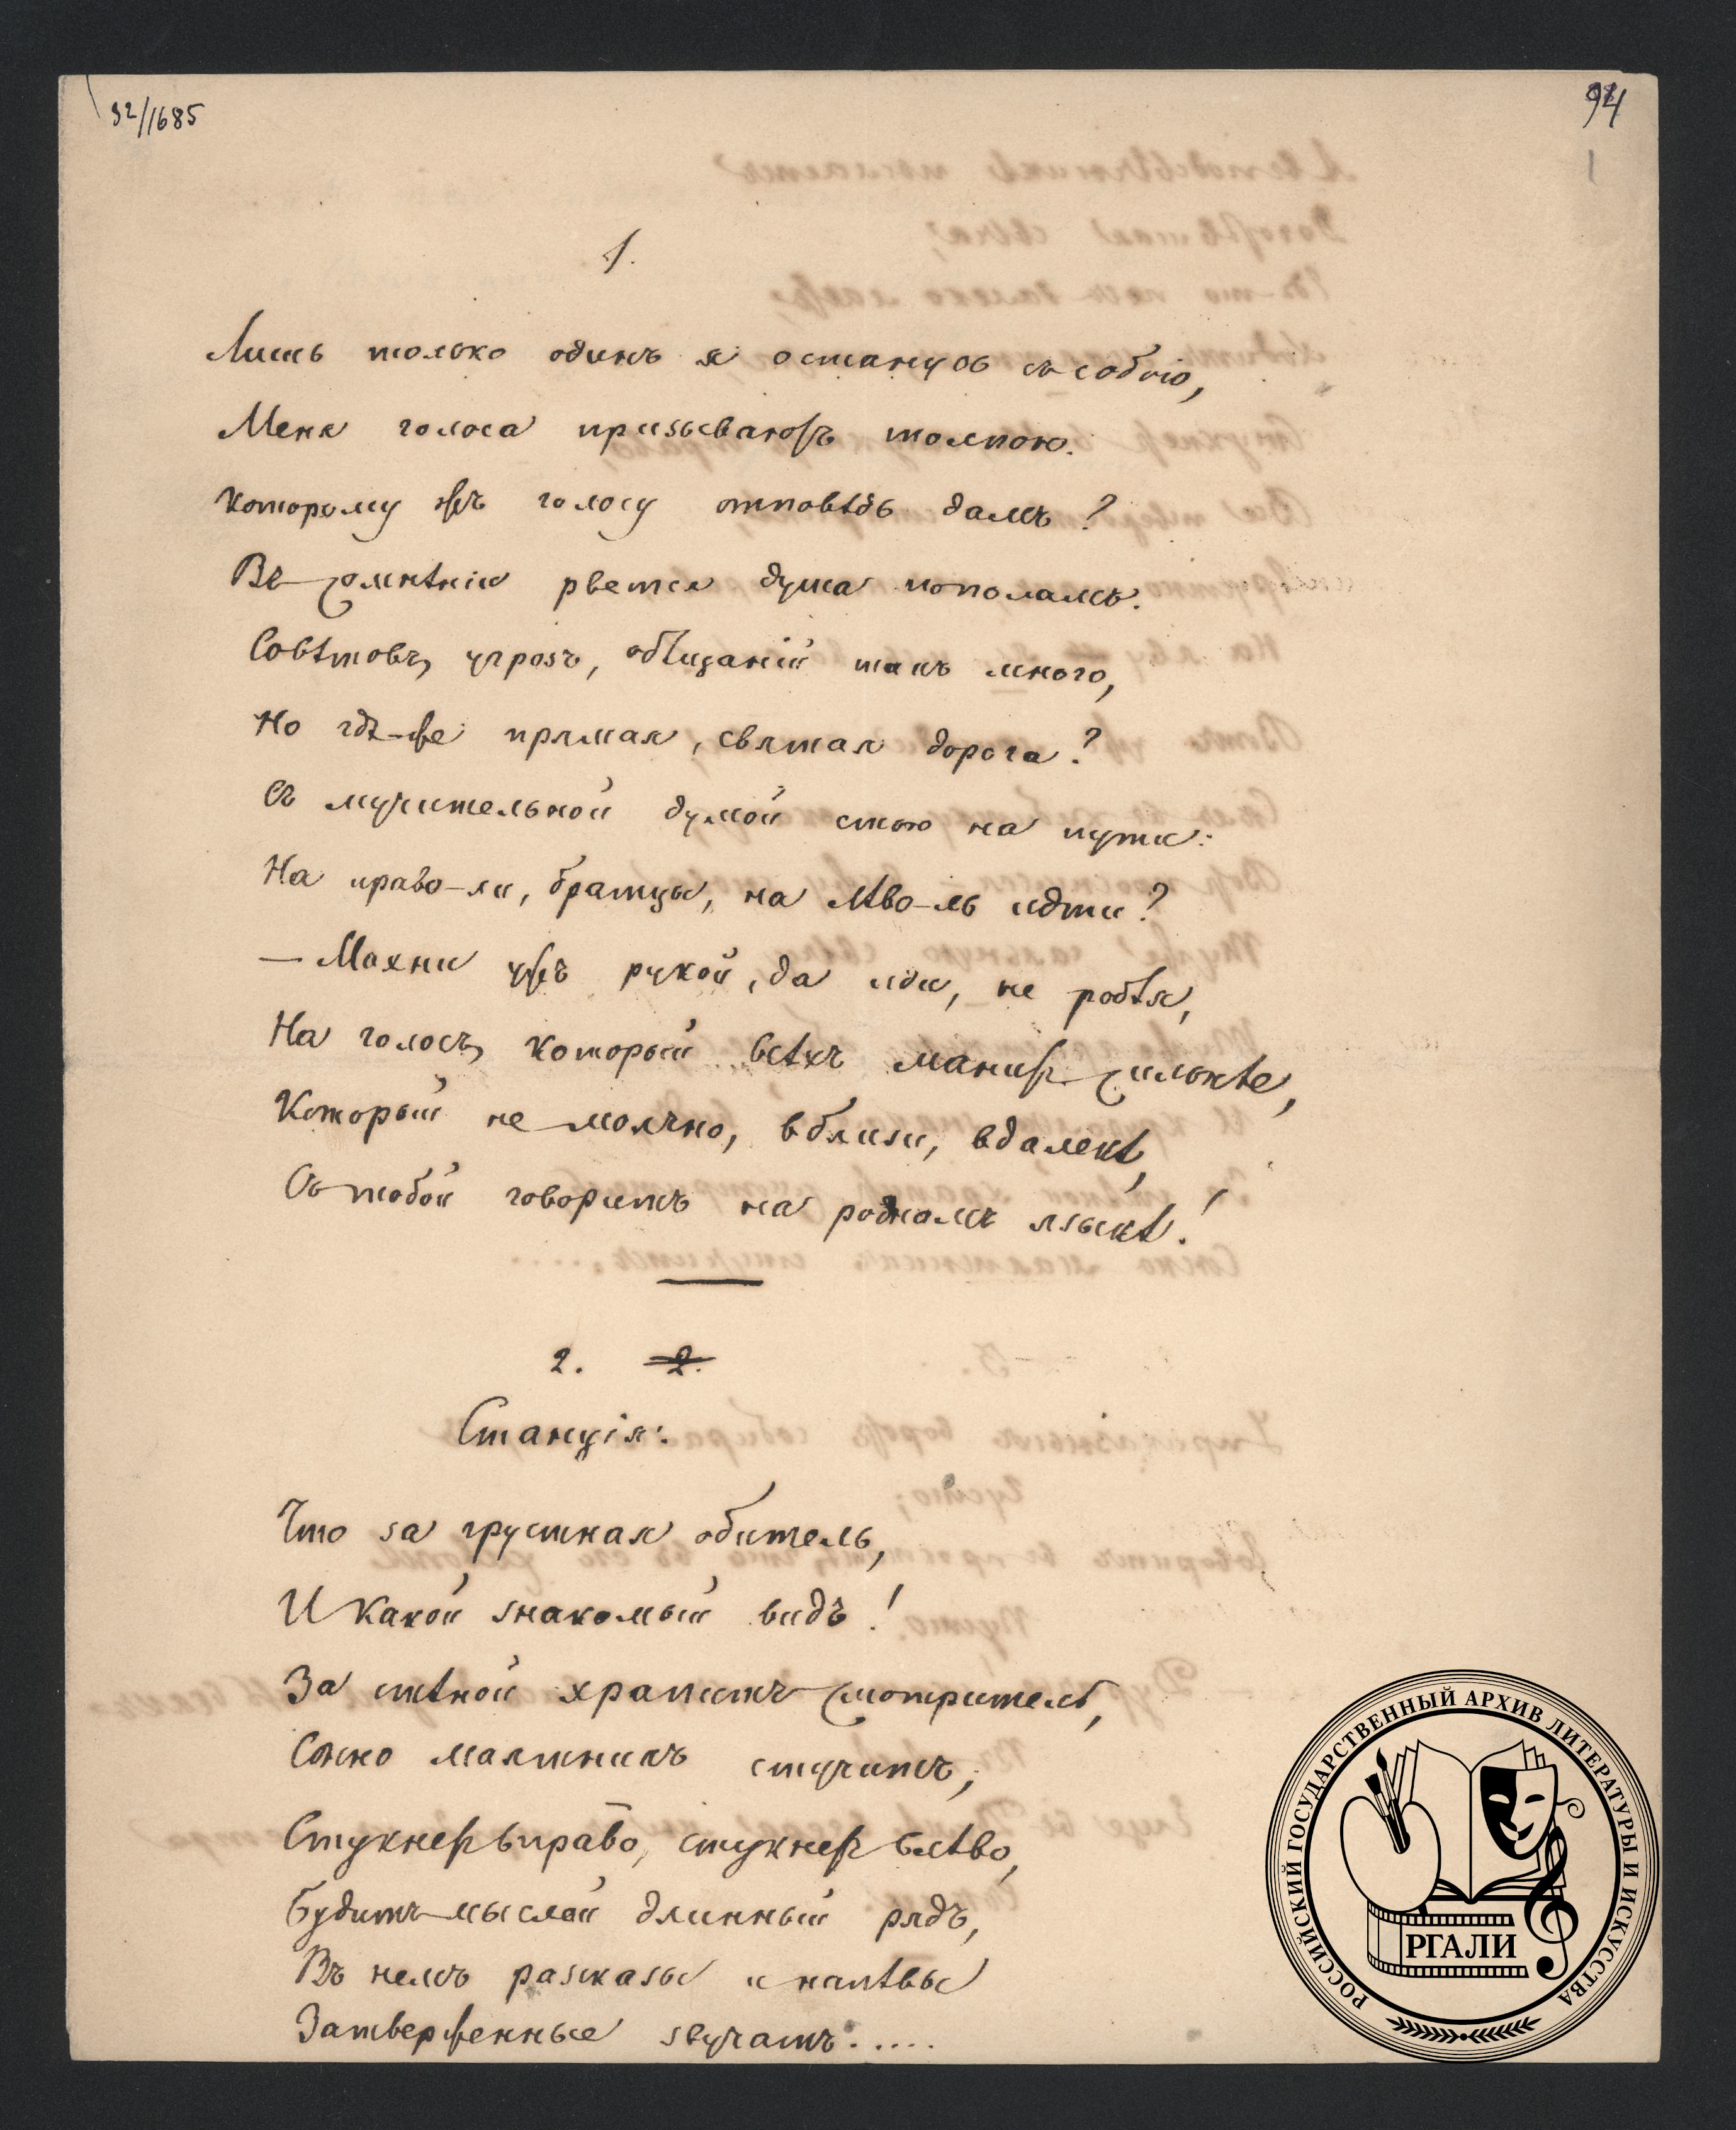 92/1685
94
1
1.
Лишь только одинъ я останусь съ собою,
Меня голоса призываютъ толпою.
Которому жъ голосу отповѣдь дамъ?
Въ сомнѣніи рвется душа пополамъ.
Совѣтовъ, угрозъ, обѣщаній такъ много,
Но гдѣ-же прямая, святая дорога?
Съ мучительной думой стою на пути:
На право-ли, братцы, на лѣво-ль идти?
— Махни ужъ рукой, да иди, не робѣя,
На голосъ, который всѣхъ манитъ сильнѣе,
Который немолчно, вблизи, вдалекѣ,
Съ тобой говоритъ на родномъ языкѣ!
2. 2.
Станція:
Что за грустная обитель,
И какой знакомый видъ!
За стѣной храпитъ смотритель,
Сонно маятникъ стучитъ;
Стукнетъ вправо, стукнетъ влѣво,
Будитъ мыслей длинный рядъ,
Въ немъ разсказы и напѣвы
Затверженные звучатъ.....
РОССИЙСКИЙ ГОСУДАРСТВЕННЫЙ АРХИВ ЛИТЕРАТУРЫ И ИСКУССТВА
РГАЛИ